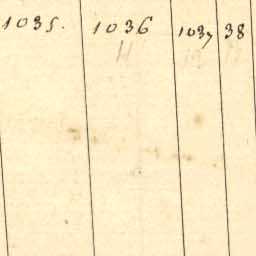 1035. 1036 1037 38